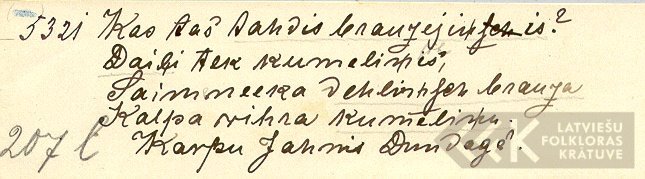 5321 Kas tas tahdis braugejinsch is?
Daili tek kumelinis,
Saimneeka dehlinsch brauga
Kalpa vihra kumelinu.
207 l Karpu Jahnis Dundagâ.
LATVIEŠU
FOLKLORAS
KRĀTUVE